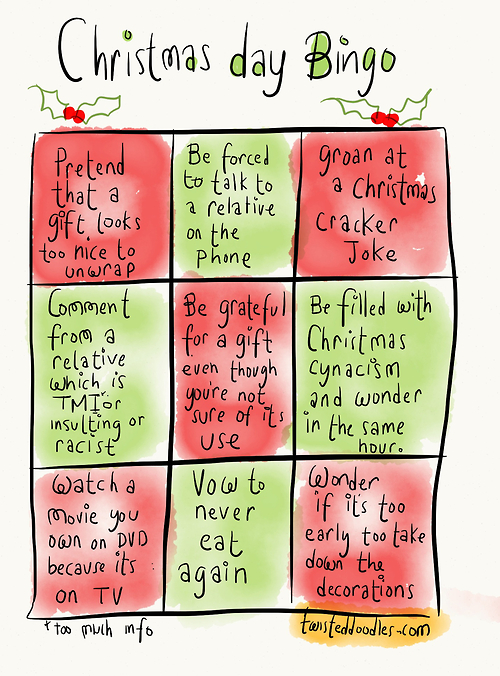 Christmas day Bingo
Pretend
that a
gift looks
too nice to
unwrap
Be forced
to talk to
a relative
on the
Phone
groan at
a Christmas
Cracker
Joke
Comment
from a
relative
which is
TMI* or
insulting or
racist
Be grateful
for a gift
even though
you're not
sure of its
use
Be filled with
Christmas
cynacism
and wonder
in the same
hour.
Watch a
Movie you
own on DVD
because its
on TV
Vow to
never
eat
again
Wonder
if it's too
early too take
down the
decorations
*too much info
twisteddoodles.com